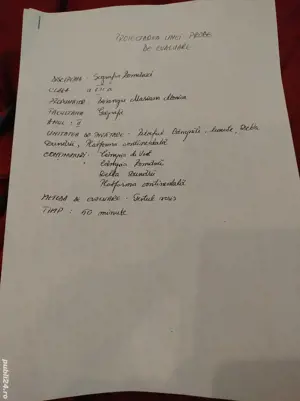 PROIECTAREA UNEI PROBE
DE EVALUARE
DISCIPLINA: Geografia României
CLASA
PROPUNĂTOR: Mariana Monica
FACULTATEA: Geografie
ANUL: II
UNITATEA DE ÎNVĂȚARE: Câmpiile, Delta
Dunării, Platforma continentală
CONȚINUTURI: Câmpia de Vest
Câmpia Română
Delta Dunării
Platforma continentală
METODA DE EVALUARE: Testul scris
TIMP: 40 minute
publi24.ro